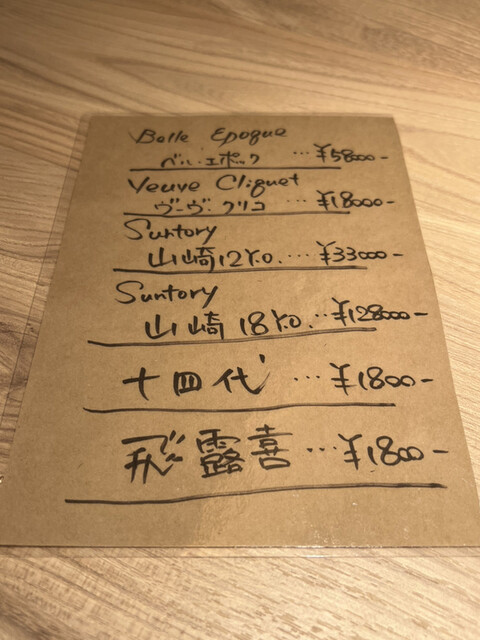 Belle Epoque
ベル・エポック …¥58000-
Veuve Cliquet
ヴーヴ・クリコ …¥18000-
Suntory
山崎12Y.O. …¥33000-
Suntory
山崎18Y.O. …¥128000-
十四代 …¥1800-
飛露喜 …¥1800-